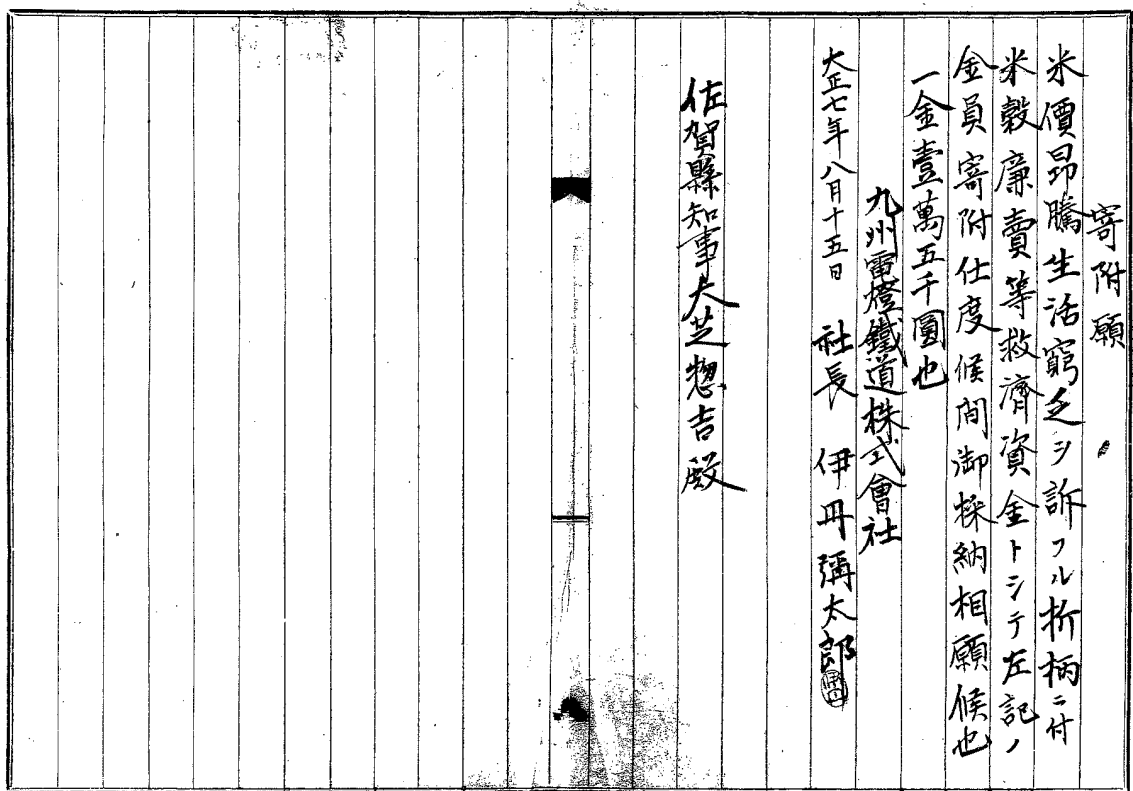 寄附願
米價昂騰生活窮乏ヲ訴フル折柄ニ付
米穀廉賣等救濟資金トシテ左記ノ
金員寄附仕度候間御採納相願候也
一金壹萬五千圓也
九州電燈鐵道株式會社
大正七年八月十五日 社長 伊丹彌太郎 伊丹
佐賀縣知事大芝惣吉殿